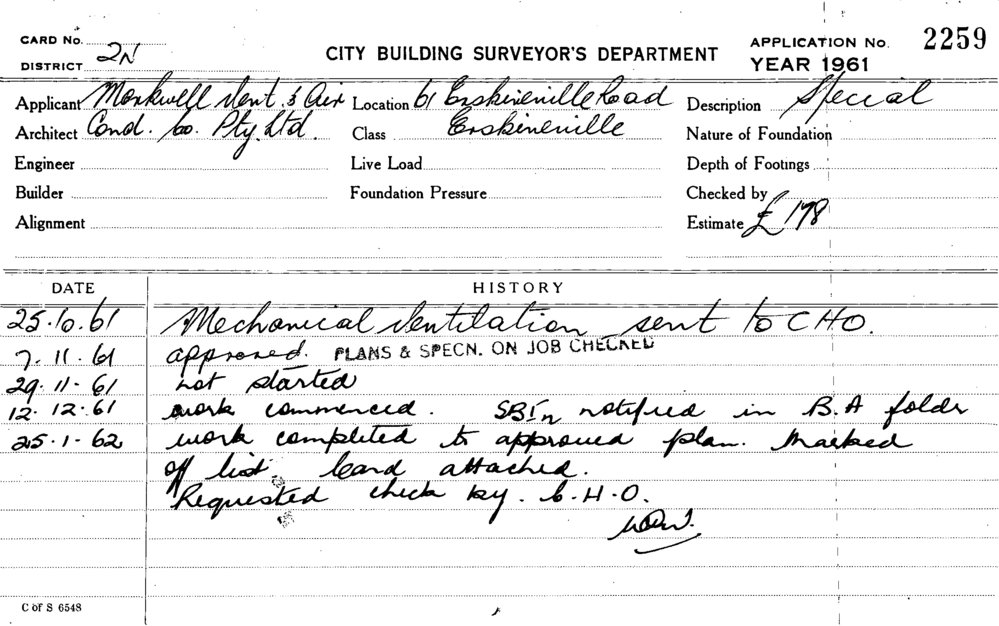 CARD No.
DISTRICT 2N
CITY BUILDING SURVEYOR'S DEPARTMENT
APPLICATION No. 2259
YEAR 1961
Applicant Monkwell Vent. & Air Location 61 Erskineville Road Description Special
Architect Cond. Co. Pty. Ltd. Class Erskineville Nature of Foundation
Engineer Live Load Depth of Footings
Builder Foundation Pressure Checked by
Alignment Estimate £178
DATE HISTORY
25.10.61 Mechanical Ventilation sent to CHO.
7.11.61 approved. PLANS & SPECN. ON JOB CHECKED
29.11.61 not started
12.12.61 work commenced. notified in B.A folder
25.1.62 work completed to approved plan. Marked
off list. Card attached.
Requested check by. C.H.O.
C of S 6548